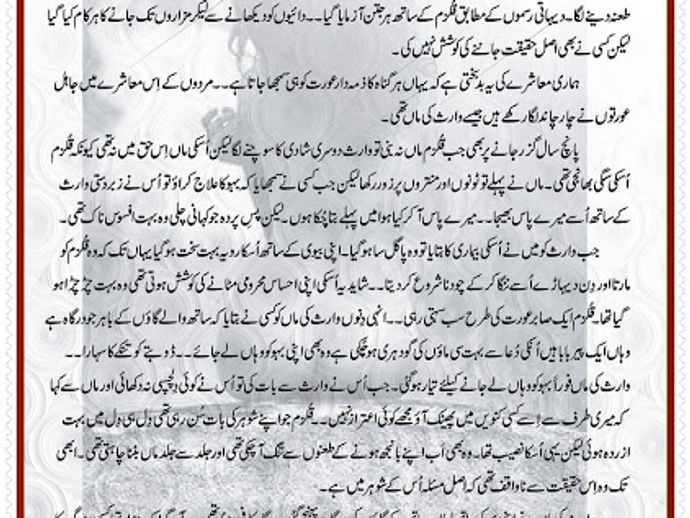 طعنہ دینے لگا۔ دیہاتی رسموں کے مطابق قلزم کے ساتھ ہر جتن آزمایا گیا۔۔ دائیوں کو دیکھانے سے لیکر مزاروں تک جانے کا ہر کام کیا گیا
لیکن کسی نے بھی اصل حقیقت جاننے کی کوشش نہیں کی۔
ہماری معاشرے کی یہ بدبختی ہے کہ یہاں ہر گناہ کا ذمہ دار عورت کو ہی سمجھا جاتا ہے۔۔ مردوں کے اِس معاشرے میں جاہل
عورتوں نے چار چاند لگا رکھے ہیں جیسے وارث کی ماں تھی۔
پانچ سال گزر جانے پر بھی جب قلزم ماں نہ بنی تو وارث دوسری شادی کا سوچنے لگا لیکن اُسکی ماں اِس حق میں نہ تھی کیونکہ قلزم
اُسکی سگی بھانجی تھی۔ ماں نے پہلے تو ٹونوں اور منتروں پر زور رکھا لیکن جب کسی نے سمجھایا کہ بہو کا علاج کراؤ تو اُس نے زبردستی وارث
کے ساتھ اُسے میرے پاس بھیجا۔۔ میرے پاس آ کر کیا ہوا میں پہلے بتا چکا ہوں۔ لیکن پسِ پردہ جو کہانی چلی وہ بہت افسوس ناک تھی۔
جب وارث کو میں نے اُسکی بیماری کا بتایا تو وہ پاگل سا ہو گیا۔ اپنی بیوی کے ساتھ اُسکا رویہ بہت سخت ہو گیا یہاں تک کہ وہ قلزم کو
مارتا اور دِن دیہاڑے اُسے ننگا کر کے چودنا شروع کر دیتا۔۔ شاید یہ اُسکی اپنی احساس محرومی مٹانے کی کوشش ہوتی تھی وہ بہت چڑچڑا ہو
گیا تھا۔ قلزم ایک صابر عورت کی طرح سب سہتی رہی۔۔ انہی دِنوں وارث کی ماں کو کسی نے بتایا کہ ساتھ والے گاؤں کے باہر جو درگاہ ہے
وہاں ایک پیر بابا ہیں اُنکی دُعا سے بہت سی ماؤں کی گود ہری ہو چکی ہے وہ بھی اپنی بہو کو وہاں لے جائے۔۔ ڈوبتے کو تنکے کا سہارا۔۔
وارث کی ماں فوراً بہو کو وہاں لے جانے کیلئے تیار ہو گئی۔ جب اُس نے وارث سے بات کی تو اُس نے کوئی دلچسپی نہ دکھائی اور ماں سے کہا
کہ میری طرف سے اِسے کسی کنویں میں پھینک آؤ مجھے کوئی اعتراز نہیں۔۔ قلزم جو اپنے شوہر کی بات سُن رہی تھی دِل ہی دِل میں بہت
ازردہ ہوئی لیکن یہی اُسکا نصیب تھا۔ وہ بھی اَب اپنے بانجھ ہونے کے طعنوں سے تنگ آ چکی تھی اور جلد سے جلد ماں بننا چاہتی تھی۔ ابھی
تک وہ اِس حقیقت سے ناواقف تھی کہ اصل مسئلہ اُس کے شوہر میں ہے۔